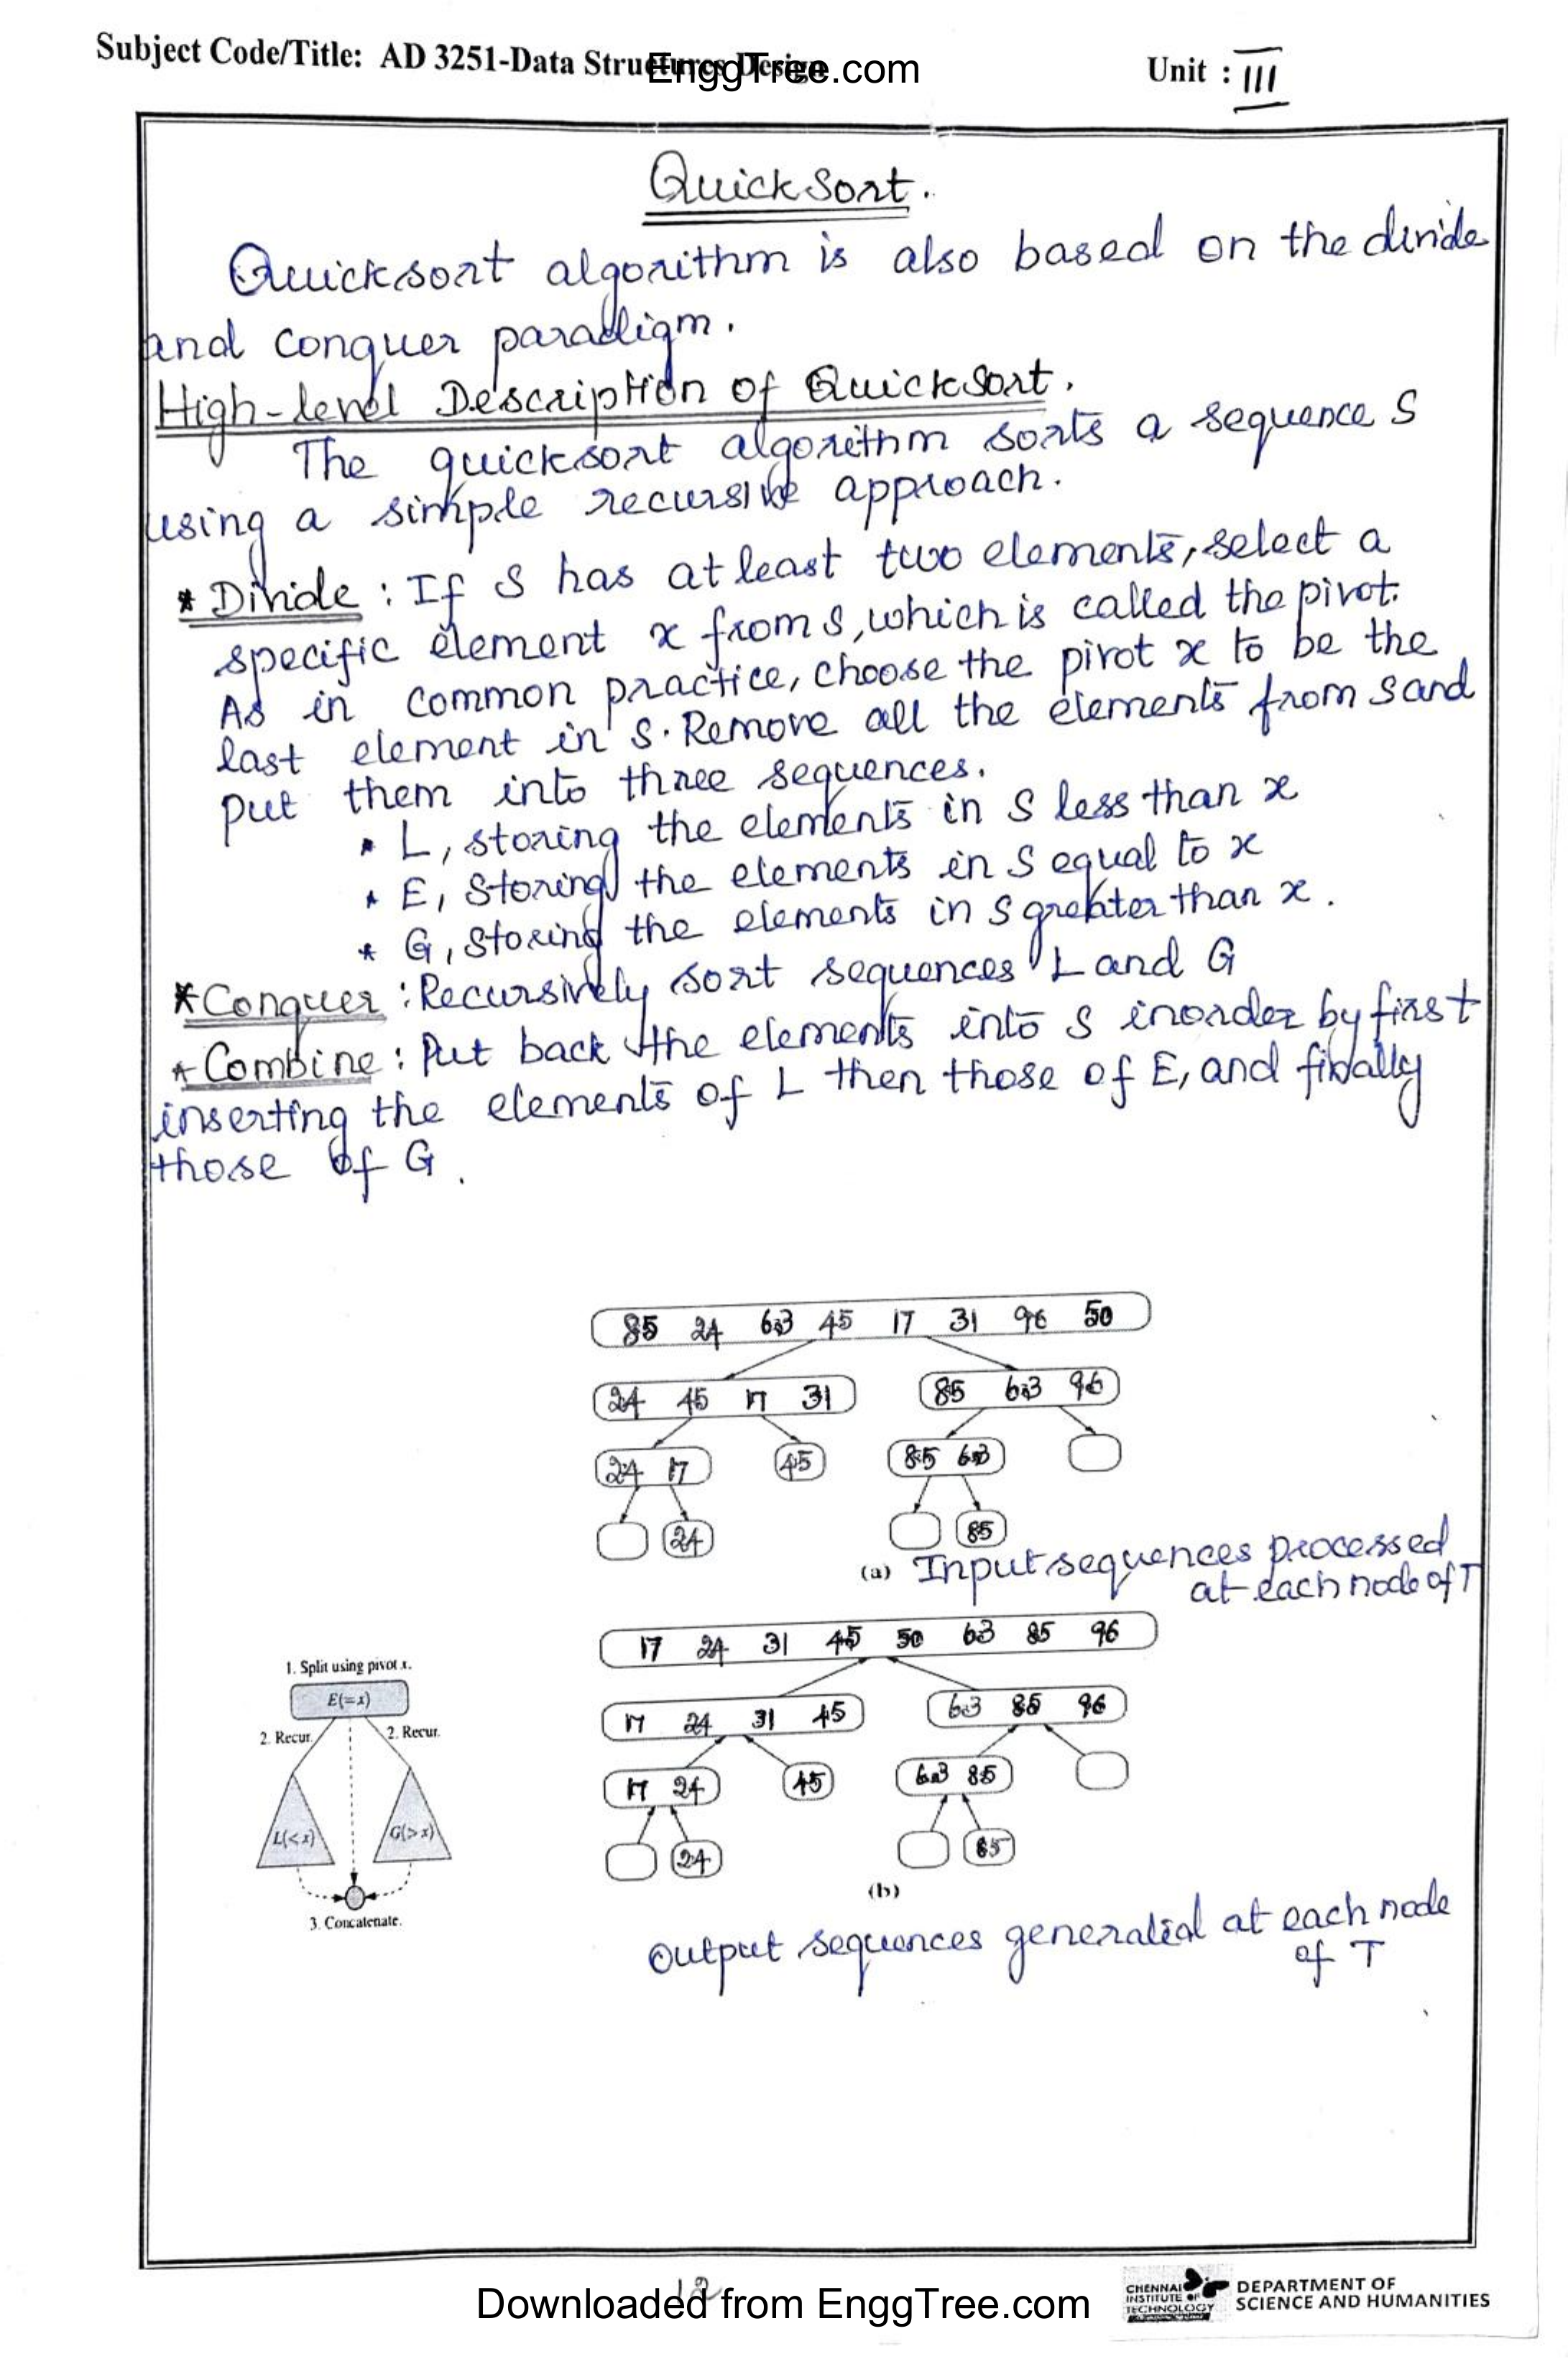 Subject Code/Title: AD 3251-Data Structures Design
EnggTree.com
Unit : III
Quick Sort.
Quick sort algorithm is also based on the divide
and conquer paradigm.
High-level Description of Quick Sort.
The quick sort algorithm sorts a sequence S
using a simple recursive approach.
* Divide : If S has at least two elements, select a
specific element x from S, which is called the pivot.
As in common practice, choose the pivot x to be the
last element in S. Remove all the elements from S and
put them into three sequences.
* L, storing the elements in S less than x
* E, Storing the elements in S equal to x
* G, Storing the elements in S greater than x.
* Conquer : Recursively sort sequences L and G
* Combine : Put back the elements into S inorder by first
inserting the elements of L then those of E, and finally
those of G.
85 24 63 45 17 31 96 50
24 45 17 31 85 63 96
24 17 45 85 63
24 85
(a) Input sequences processed
at each node of T
17 24 31 45 50 63 85 96
17 24 31 45 63 85 96
17 24 45 63 85
24 85
(b)
Output sequences generated at each node
of T
1. Split using pivot x.
E(=x)
2. Recur. 2. Recur.
L(<x) G(>x)
3. Concatenate.
12
Downloaded from EnggTree.com
CHENNAI
INSTITUTE OF
TECHNOLOGY
DEPARTMENT OF
SCIENCE AND HUMANITIES